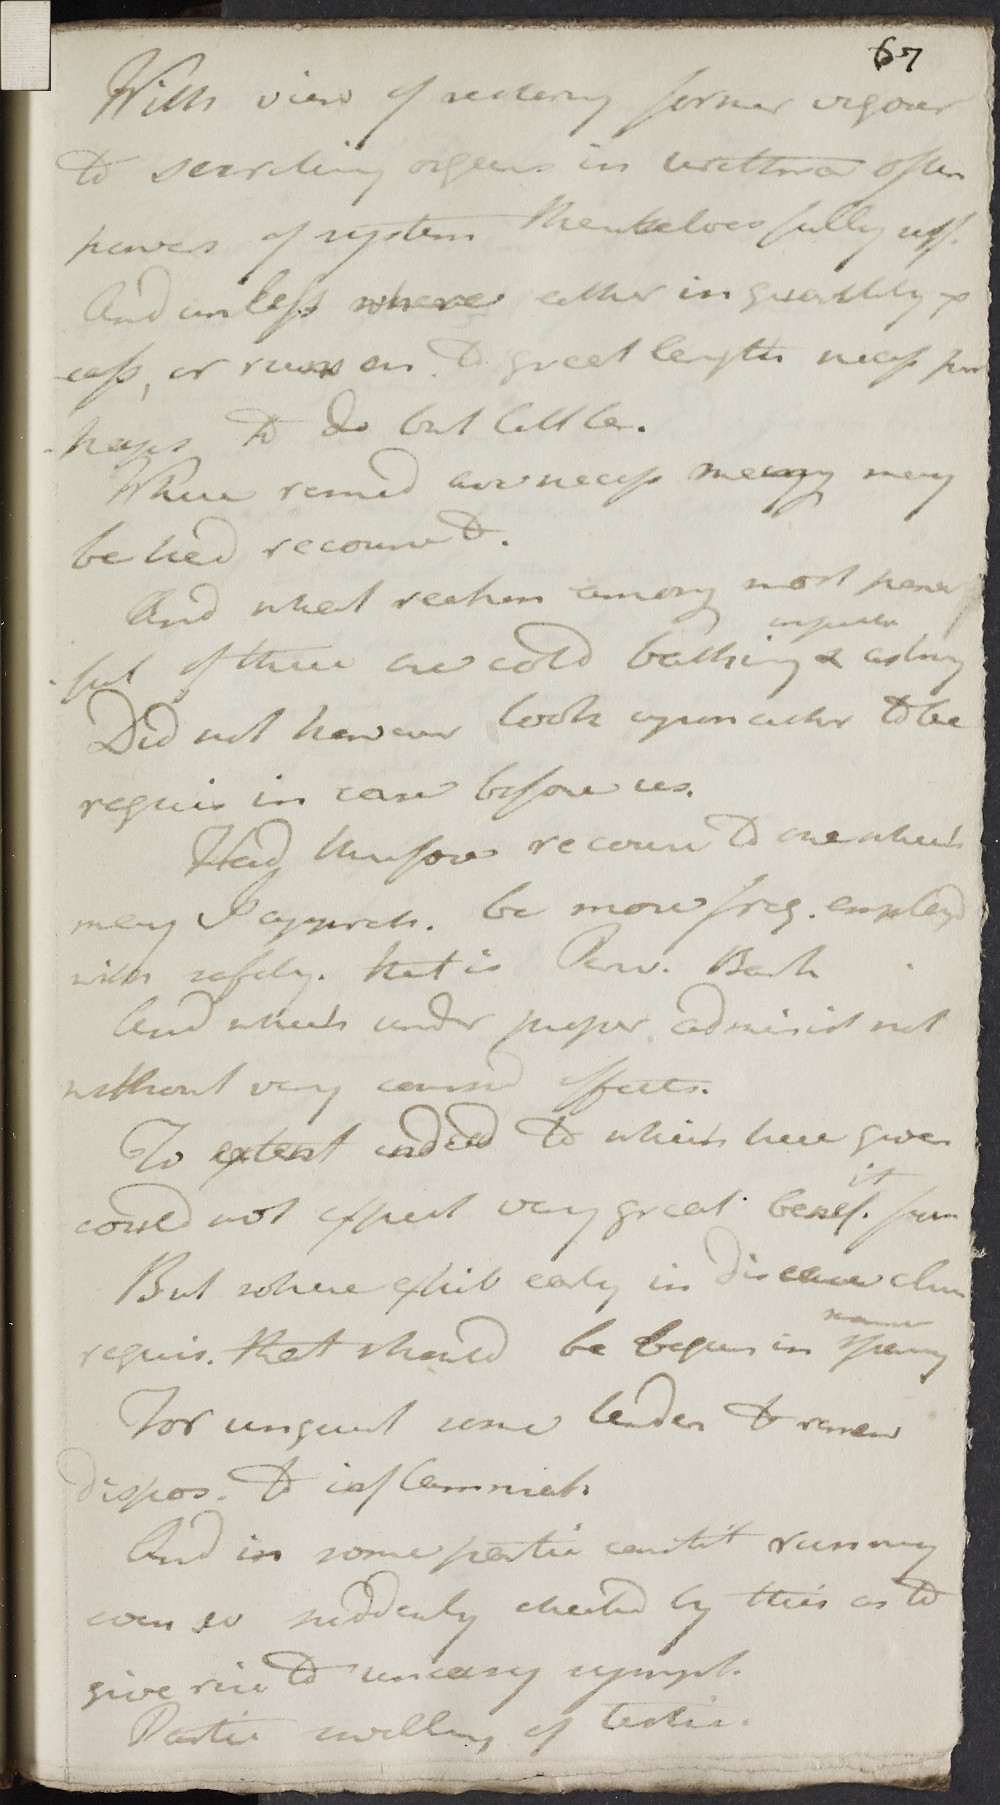 67
With view of restoring former vigour
to secreting organs in urethra often
powers of system themselves fully suff.
And unless where either in quantity ex
cess, or runs on to great length necess per
haps to do but little.
Where remed are necess many may
be had recourse to.
And what reckon among most power
ful of these are cold bathing & astring
Did not however look upon either to be
requis in case before us.
Had therefore recourse to one which
may I appreh. be more freq. employd
with safety. that is Peruv. Bark
And which under proper administ not
without very consid effects.
To extent indeed to which here given
could not expect very great benef. from it
But where exhib early in disease
requis. that should be begun in sparing
For urgent some tender to renew
dispos. to inflammat.
And in some partic constit running
even so suddenly checked by this as to
give rise to uneasy sympt.
Partic swelling of testic.